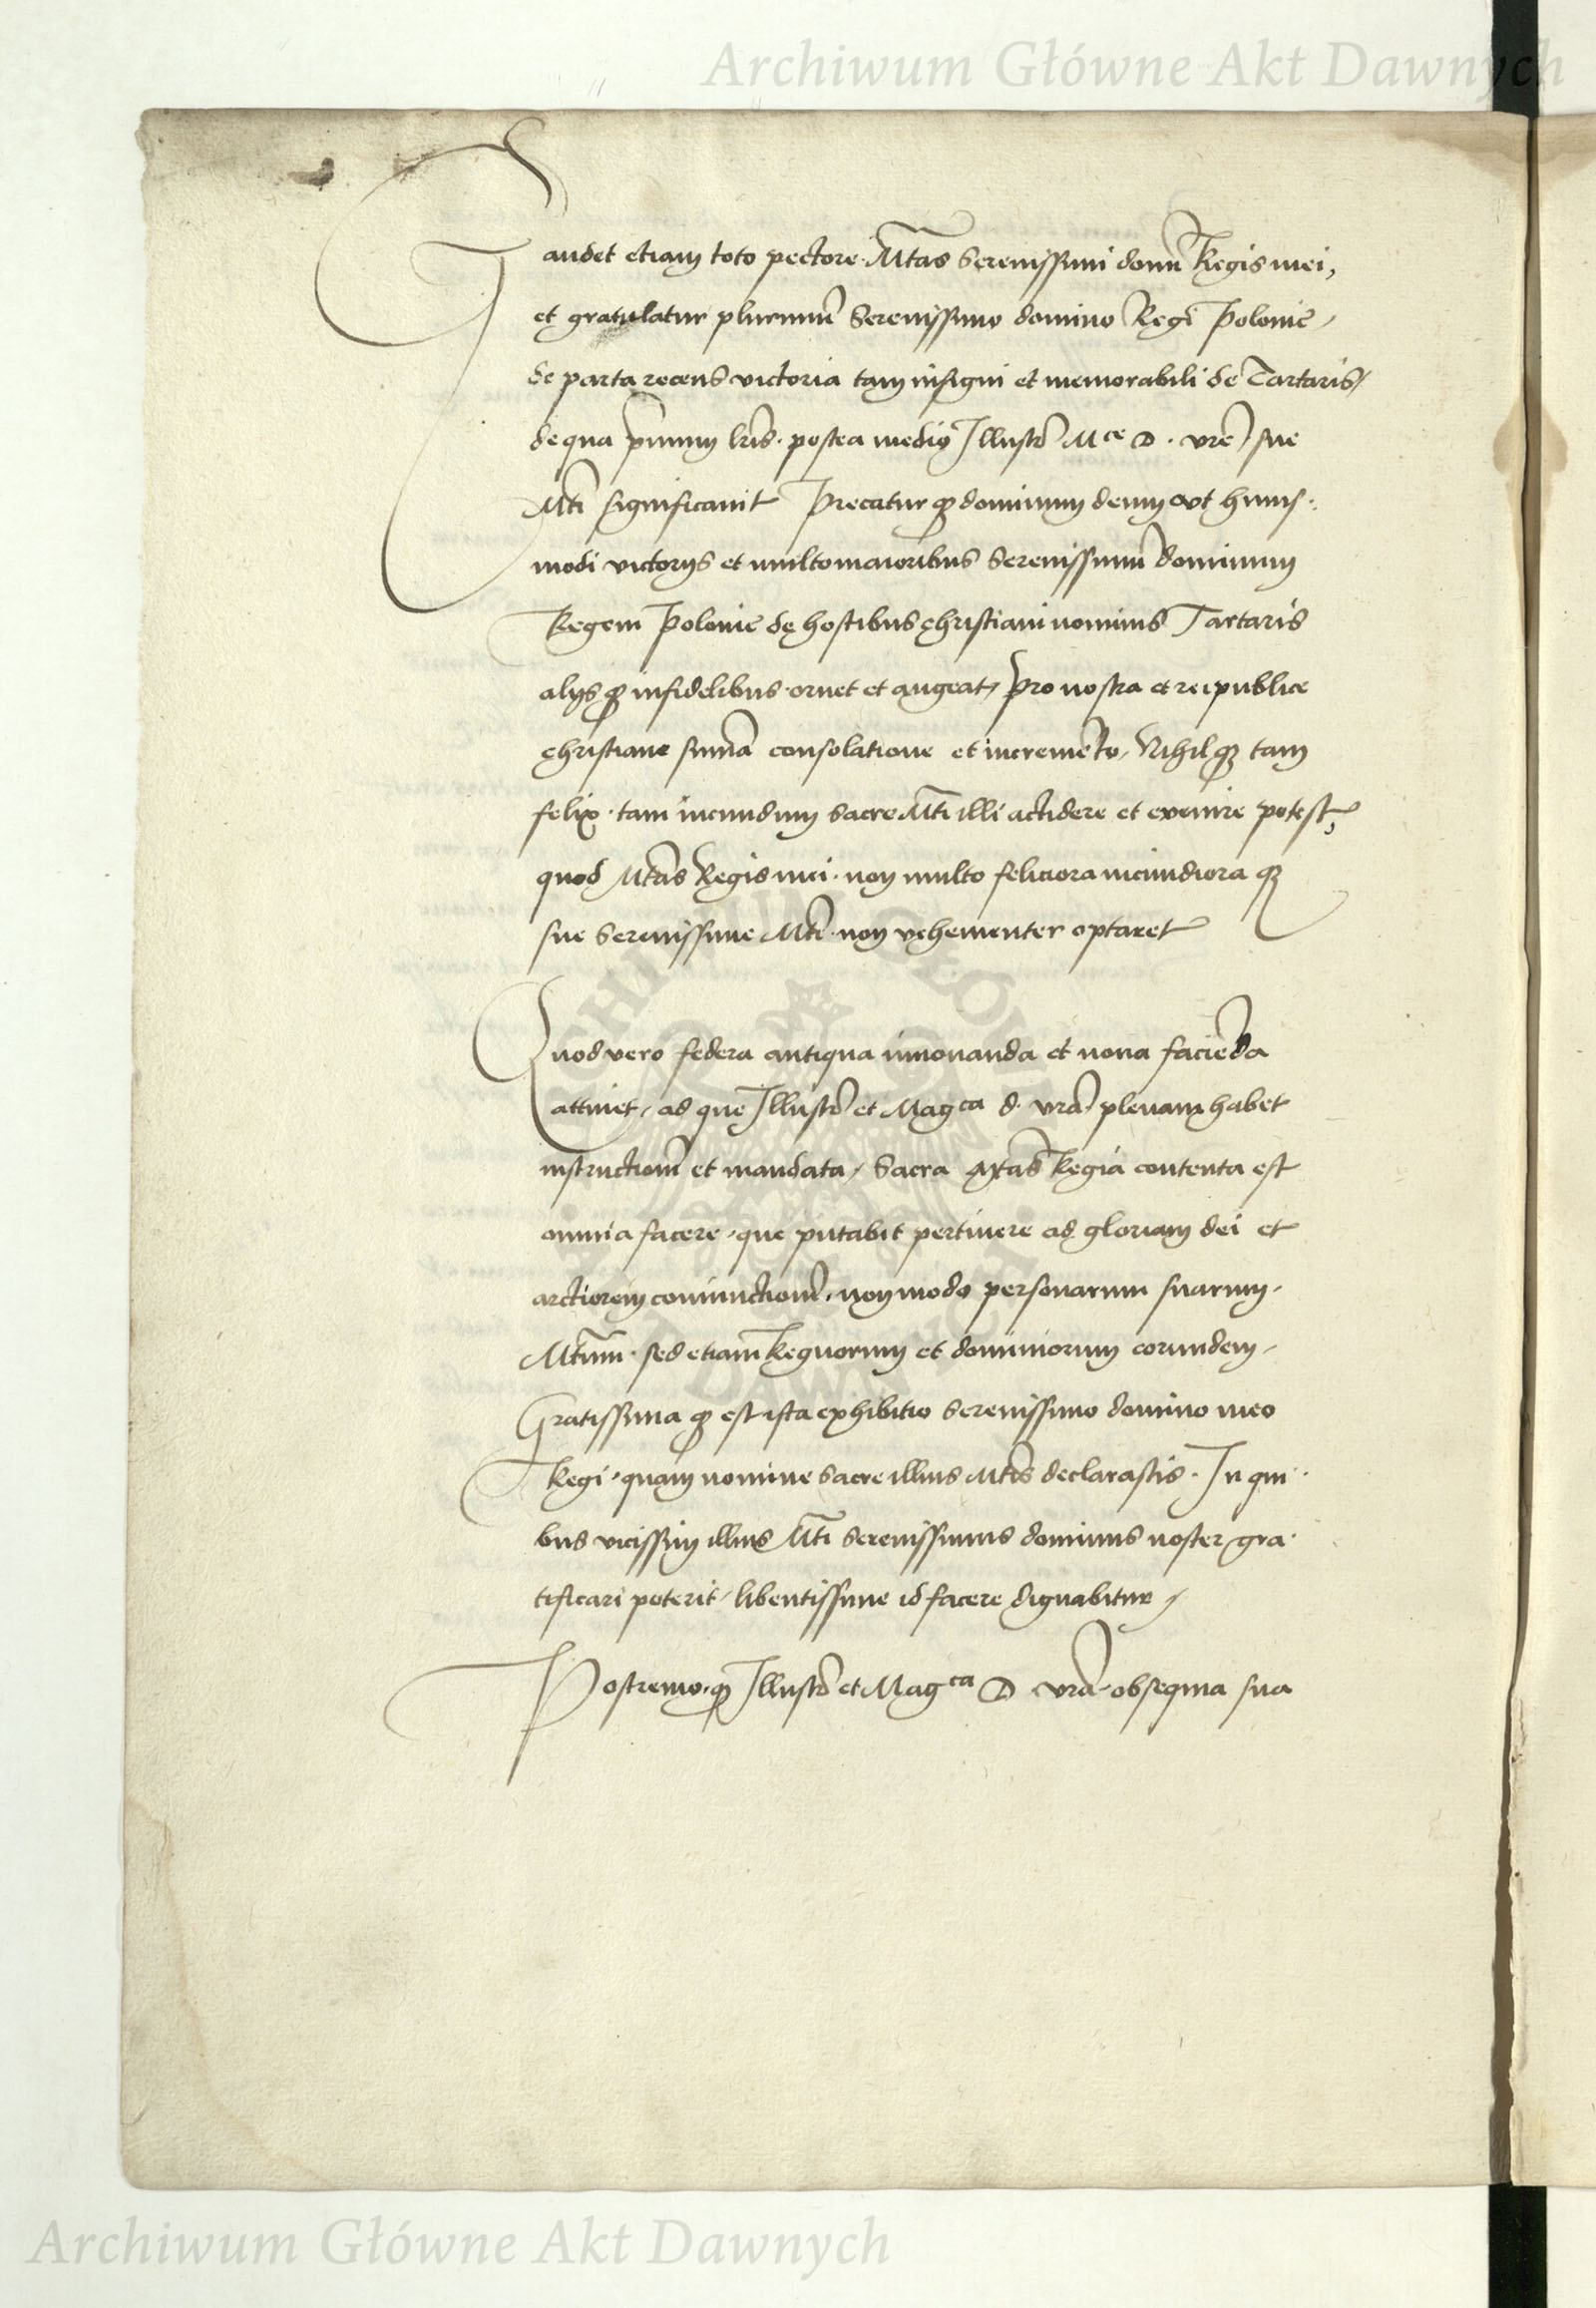 Archiwum Główne Akt Dawnych
Gaudet etiam toto pectore Mtas Serenissimi domi Regis mei,
et gratulatur plurimum Serenissimo domino Regi Polonie,
de parta recens victoria tam insigni et memorabili de Tartaris,
de qua primum lris. postea medio Illustr. Mce D. vre sue
Mti significavit Precaturq dominum deum vt huius.
modi victorijs et multo maioribus Serenissimu dominum
Regem Polonie de hostibus christiani nominis Tartaris
alijsq infidelibus ornet et augeat, pro nostra et reipublice
christiane suma consolatione et incremeto, Nihilq tam
felix tam iucundum sacre Mti illi accidere et evenire potest,
quod Mtas Regis mei non multo feliciora iucundioraq
sue Serenissime Mti non vehementer optaret
Quod vero federa antiqua innovanda et nova facieda
attinet, ad que Illustr. et Magca d. vra plenam habet
instructiom et mandata, Sacra Mtas Regia contenta est
omnia facere, que putabit pertinere ad gloriam dei et
arctiorem coniunctiom, non modo personarum suarum,
Mtum. sed etiam Regnorum et dominiorum eorundem,
Gratissimaq est ista exhibitio Serenissimo domino meo
Regi, quam nomine Sacre illius Mtis declarastis. In qui.
bus vicissim illius Mti Serenissimus dominus noster gra.
tificari poterit, libentissime id facere dignabitur,
Postremoq Illustr. et Magca D vra obsequia sua
Archiwum Główne Akt Dawnych